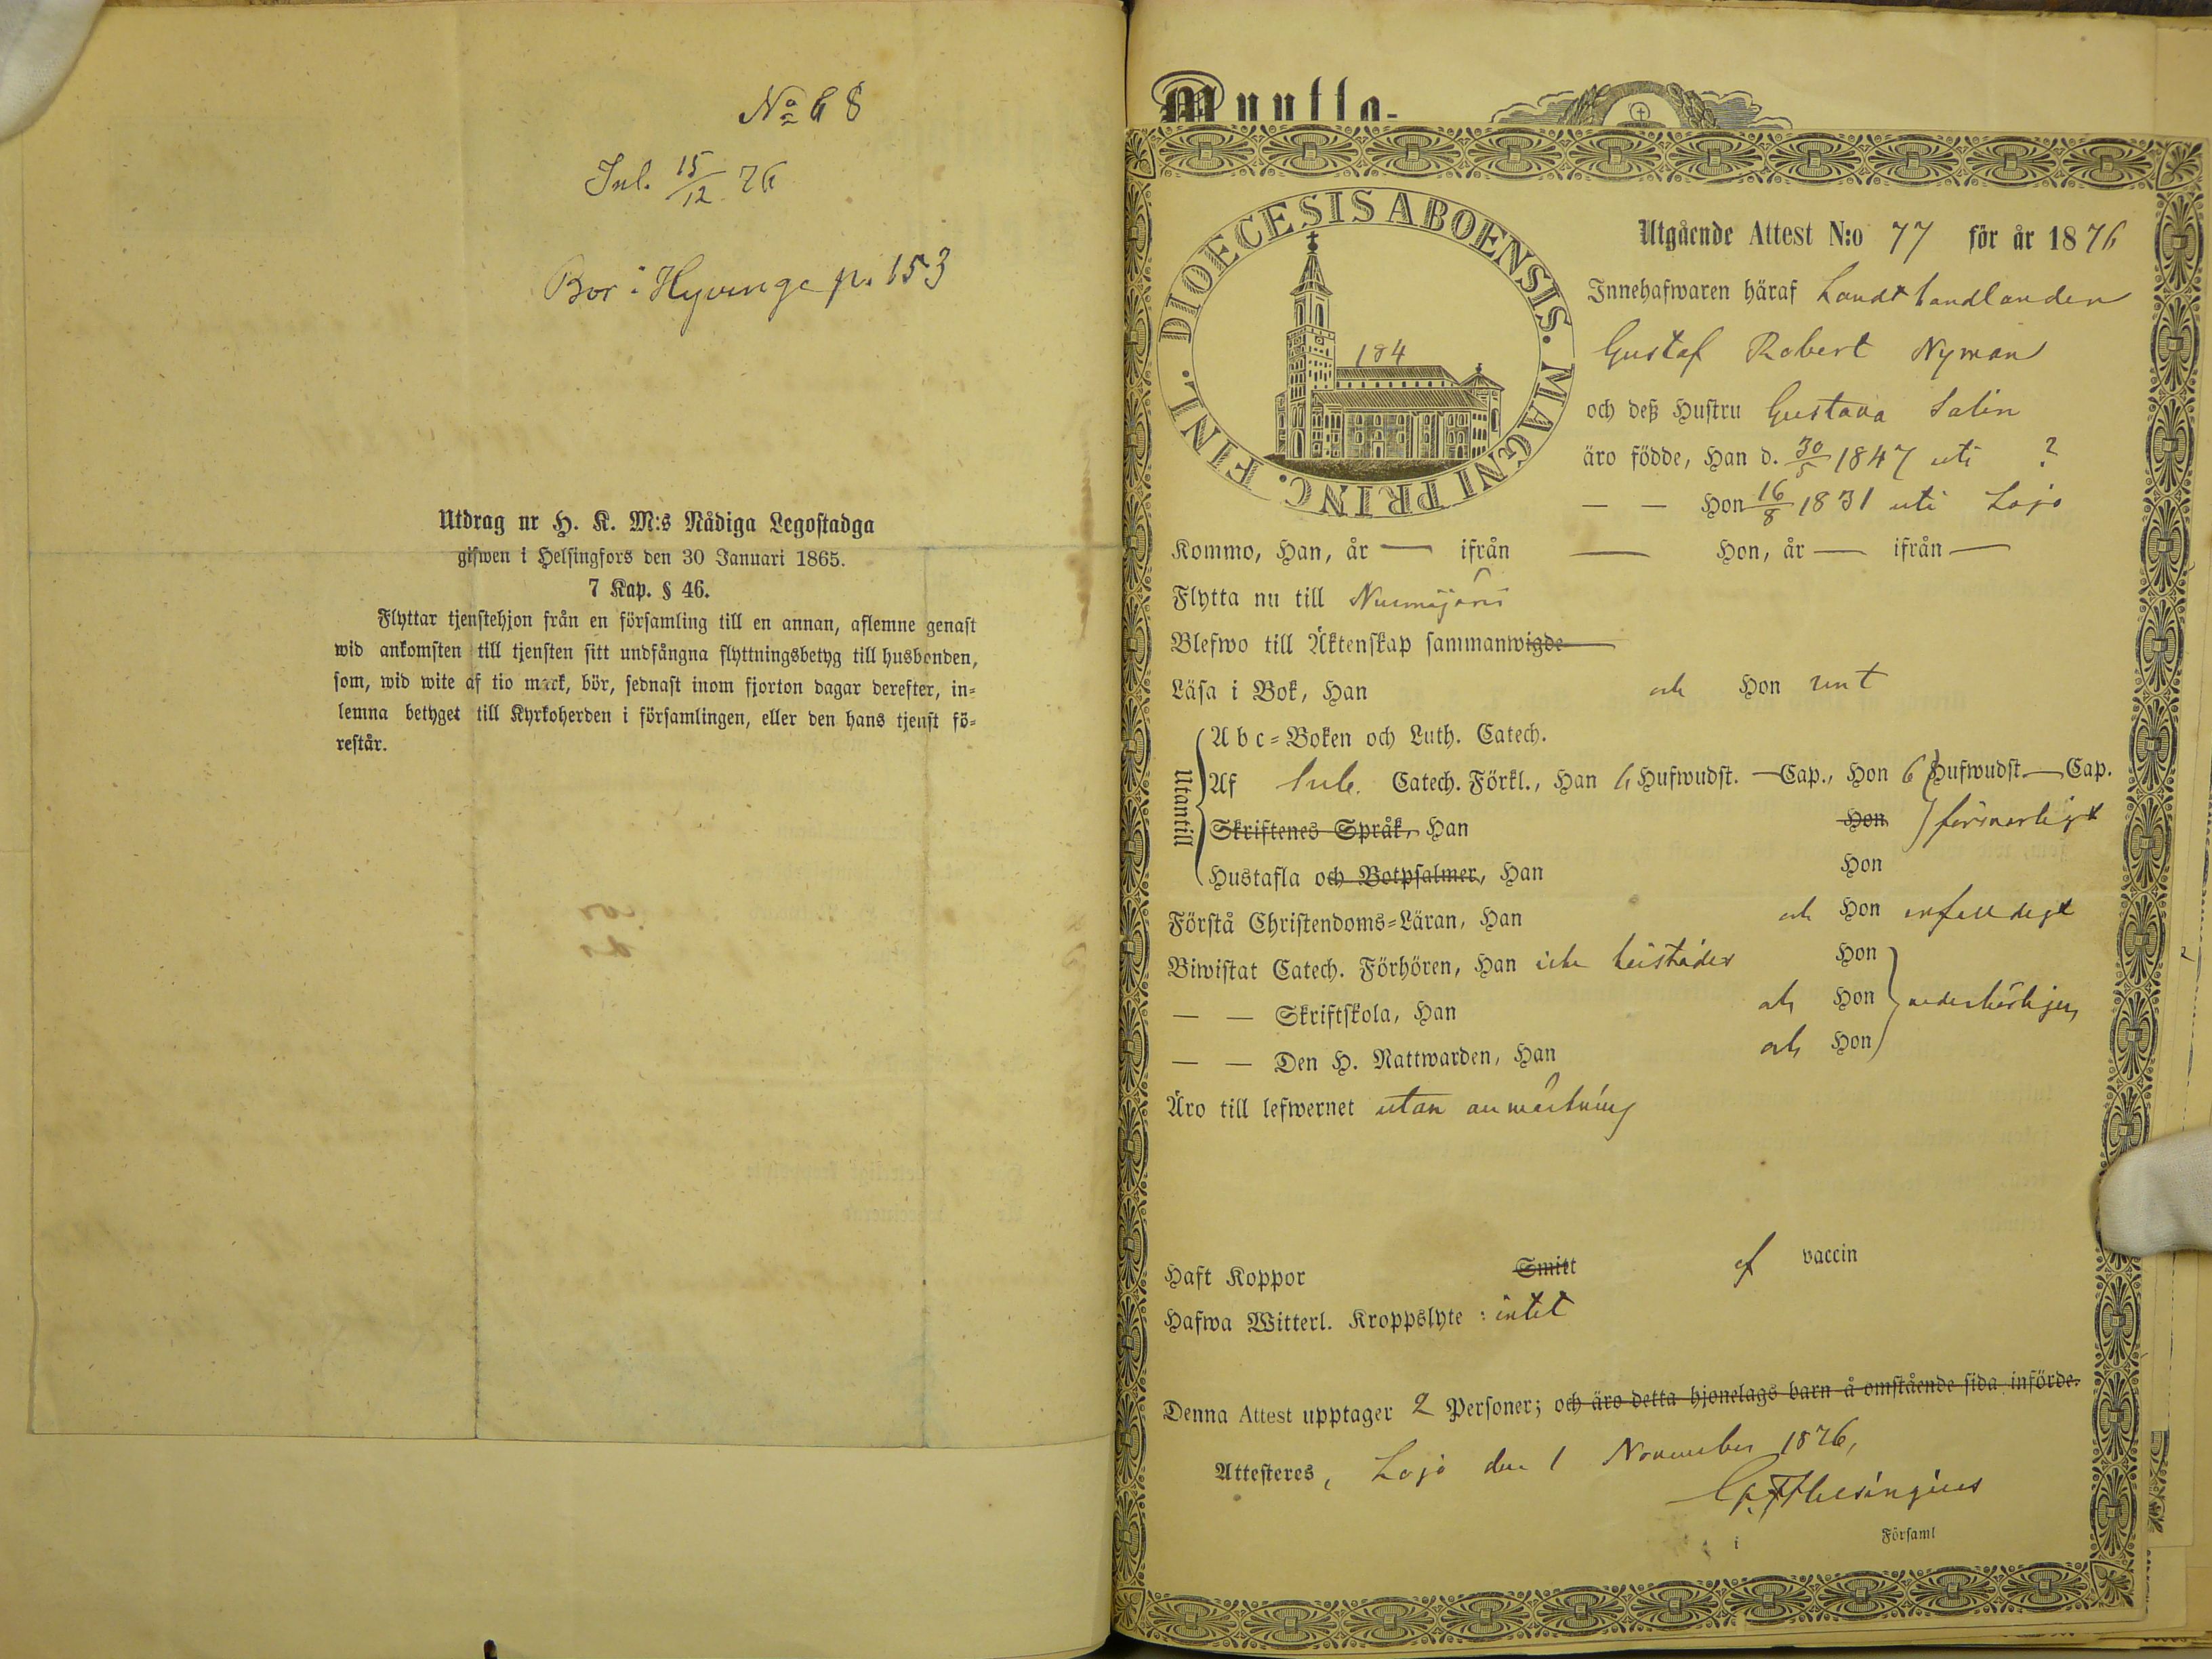 No 68
Inl. 15/12 76
Bor i Hyvinge p. 153
Utdrag ur H. K. M:s Nådiga Legostadga
gifwen i Helsingfors den 30 Januari 1865.
7 Kap. § 46.
Flyttar tjenstehjon från en församling till en annan, aflemne genast
wid ankomsten till tjensten sitt undfångna flyttningsbetyg till husbonden,
som, wid wite af tio mark, bör, sednast inom fjorton dagar derefter, in-
lemna betyget till Kyrkoherden i församlingen, eller den hans tjenst fö-
restår.
Muutto-
DIOECESIS ABOENSIS. MAGNI PRINC. FINL.
184
Utgående Attest N:o 77 för år 1876
Innehafwaren häraf Landthandlanden
Gustaf Robert Nyman
och deß Hustru Gustava Salin
äro födde, Han d. 30/5 1847 uti ?
— — Hon 16/8 1831 uti Lojo
Kommo, Han, år — ifrån — Hon, år — ifrån —
Flytta nu till Nurmijärvi
Blefwo till Äktenskap sammanwigde
Läsa i Bok, Han och Hon rent
Utantill
A b c-Boken och Luth. Catech.
Af Catech. Förkl., Han 6 Hufwudst. — Cap., Hon 6 Hufwudst — Cap.
Skriftenes Språk, Han Hon försvarligt
Hustafla och Botpsalmer, Han Hon
Förstå Christendoms-Läran, Han och Hon enfaldigt
Biwistat Catech. Förhören, Han icke Hon
— — Skriftskola, Han och Hon vederbörligen
— — Den H. Nattwarden, Han och Hon
Äro till lefwernet utan anmärkning
Haft Koppor Smitt af vaccin
Hafwa Witterl. Kroppslyte : intet
Denna Attest upptager 2 Personer; och äro detta hjonelags barn å omstående sida införde.
Attesteres, Lojo den 1 November 1876,
i Församl